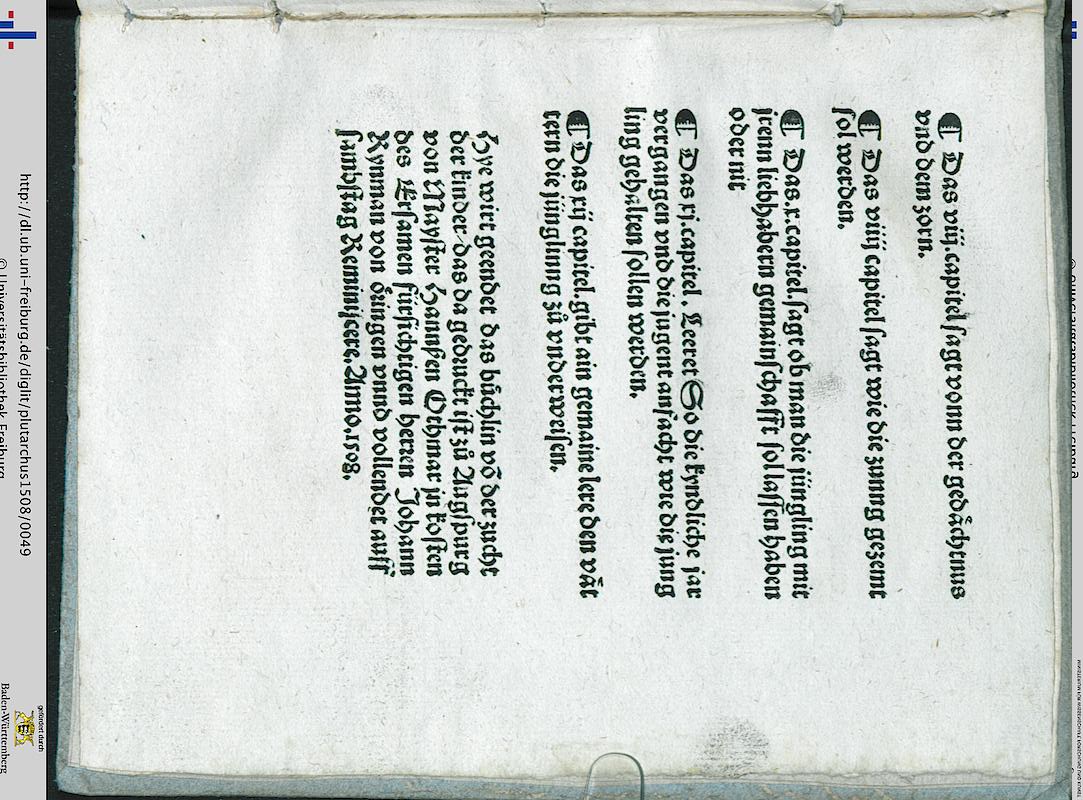 ¶ Das viij.capitel sagt vonn der gedåchtnus
vnd dem zorn.
¶ Das viiij capitel sagt wie die zunng gezemt
sol werden.
¶ Das.x.capitel.sagt ob man die jüngling mit
jrenn liebhabern gemainschafft sol lassen haben
oder nit
¶ Das xj.capitel. Leeret So die kyndliche jar
vergangen vnd die jugent anfacht wie die jung
ling gehalten sollen werden.
¶ Das xij capitel.gibt ain gemaine lere den våt
tern die jünglinng zů vnderweisen.
Hye wirt geendet das bůchlin võ der zucht
der kinder das da gedruckt ist zů Augspurg
von Mayster Hannsen Othmar jn kosten
des Ersamen fürsichtigen herren Johann
Rynman von öringen vnnd vollendet auff
sambstag Reminiscere.Anno.1508.
http://dl.ub.uni-freiburg.de/diglit/plutarchus1508/0049
© Universitätsbibliothek Freiburg
gefördert durch
Baden-Württemberg